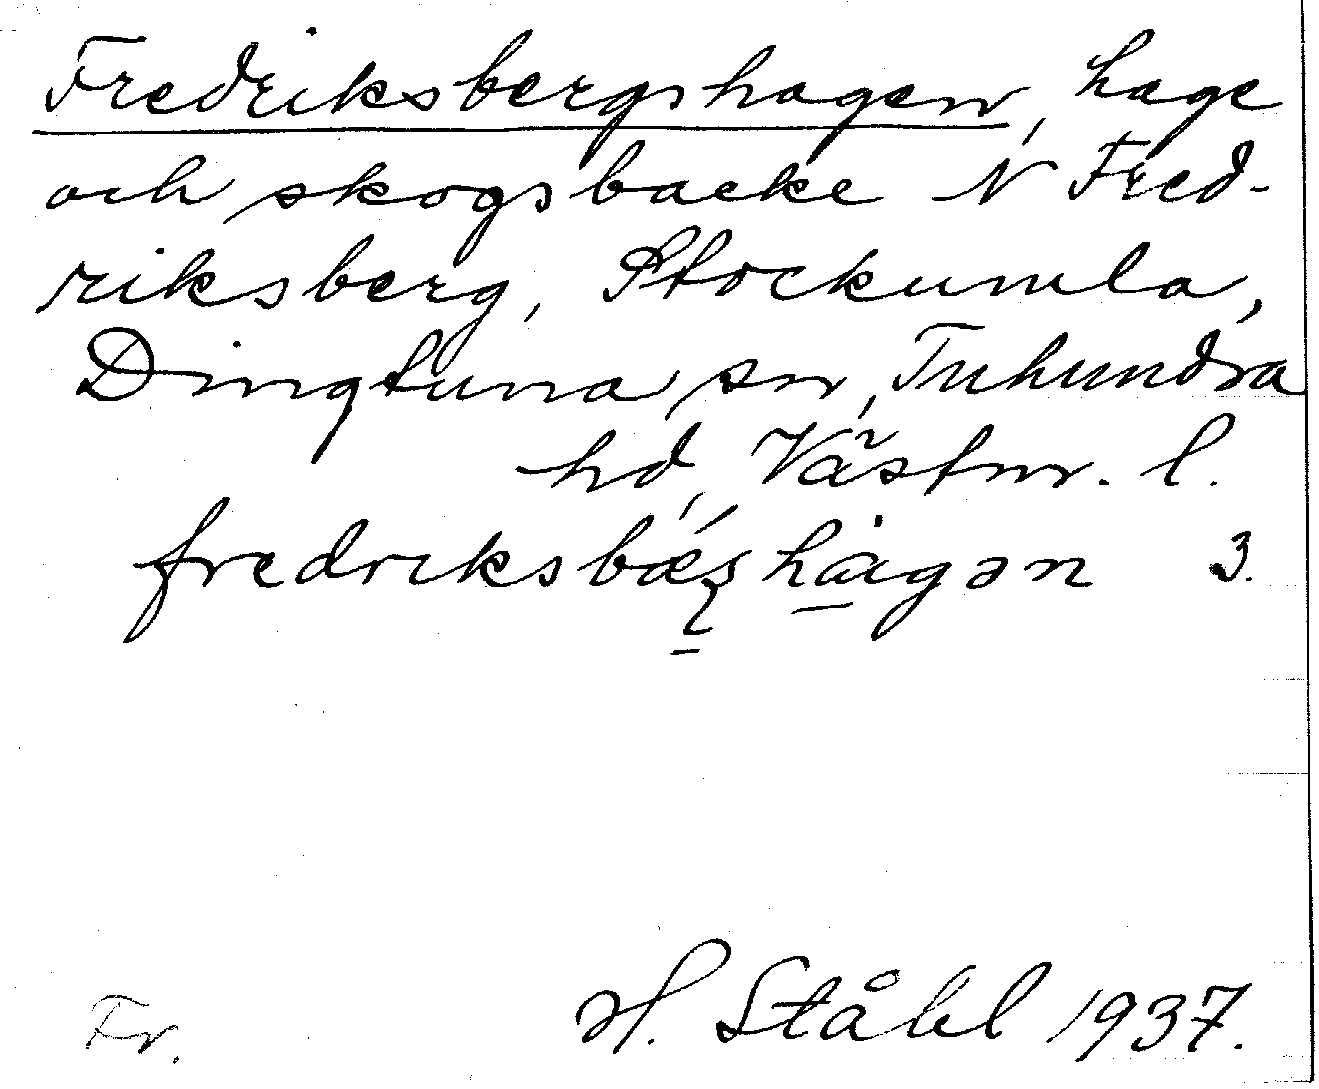 Fredriksbergshagen, hage
och skogsbacke N Fred-
riksberg, Stockumla,
Dingtuna sn, Tuhundra
hd, Västm. l.
3.
Fr. H. Ståhl 1937.